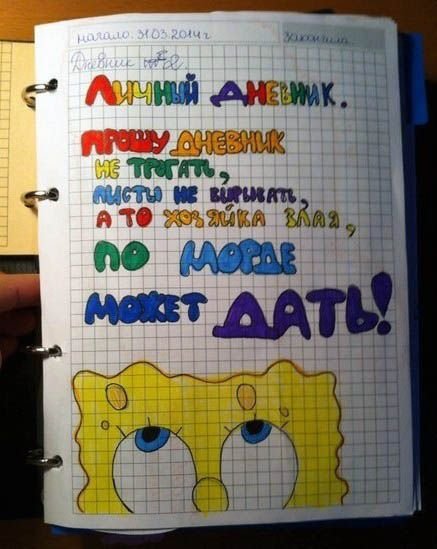 начало. 31.03.2014г
закончила.
Дневник
Личный дневник.
Прошу дневник
не трогать,
листы не вырывать,
а то хозяйка злая,
по морде
может ДАТЬ!